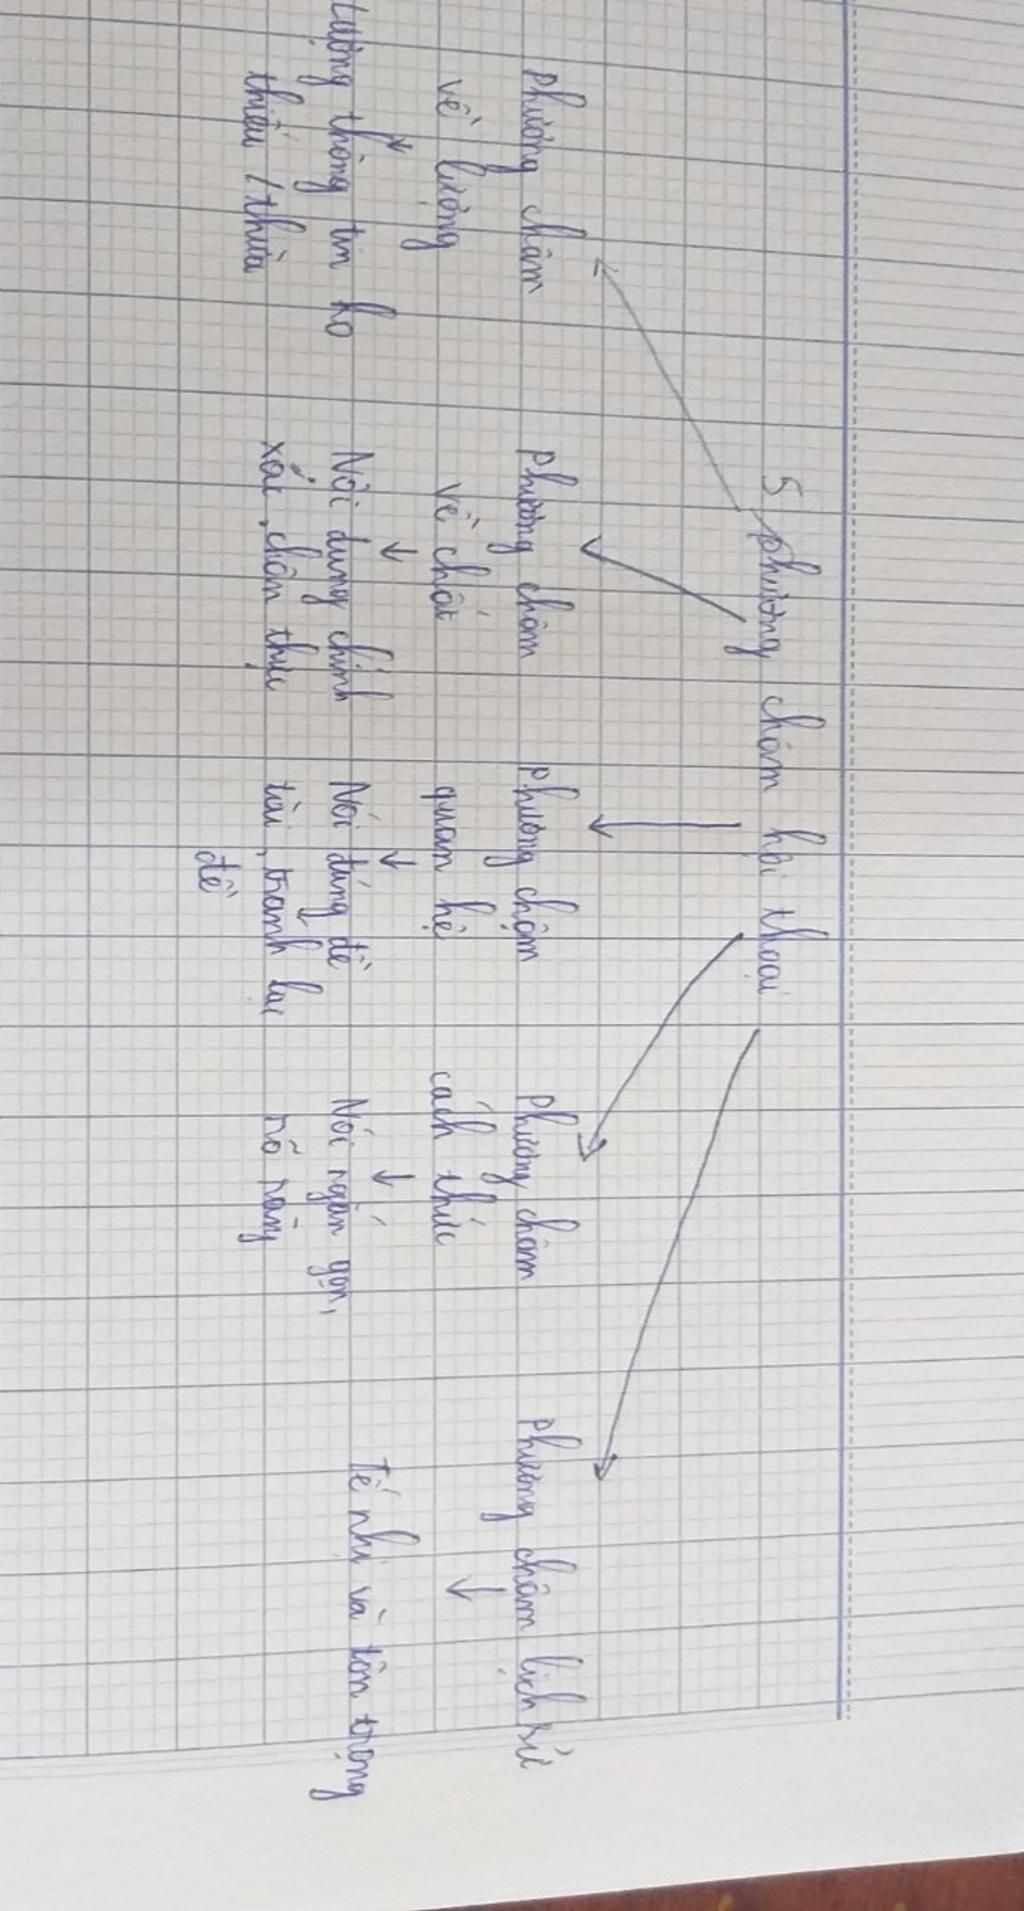 5 phương châm hội thoại
phương châm
về lượng
lượng thông tin ko
thiếu / thừa
phương châm
về chất
Nội dung chính
xác, chân thực
phương châm
quan hệ
Nói đúng đề
tài, tránh lạc
đề
phương châm
cách thức
Nói ngắn gọn,
rõ ràng
phương châm lịch sử
Tế nhị và tôn trọng